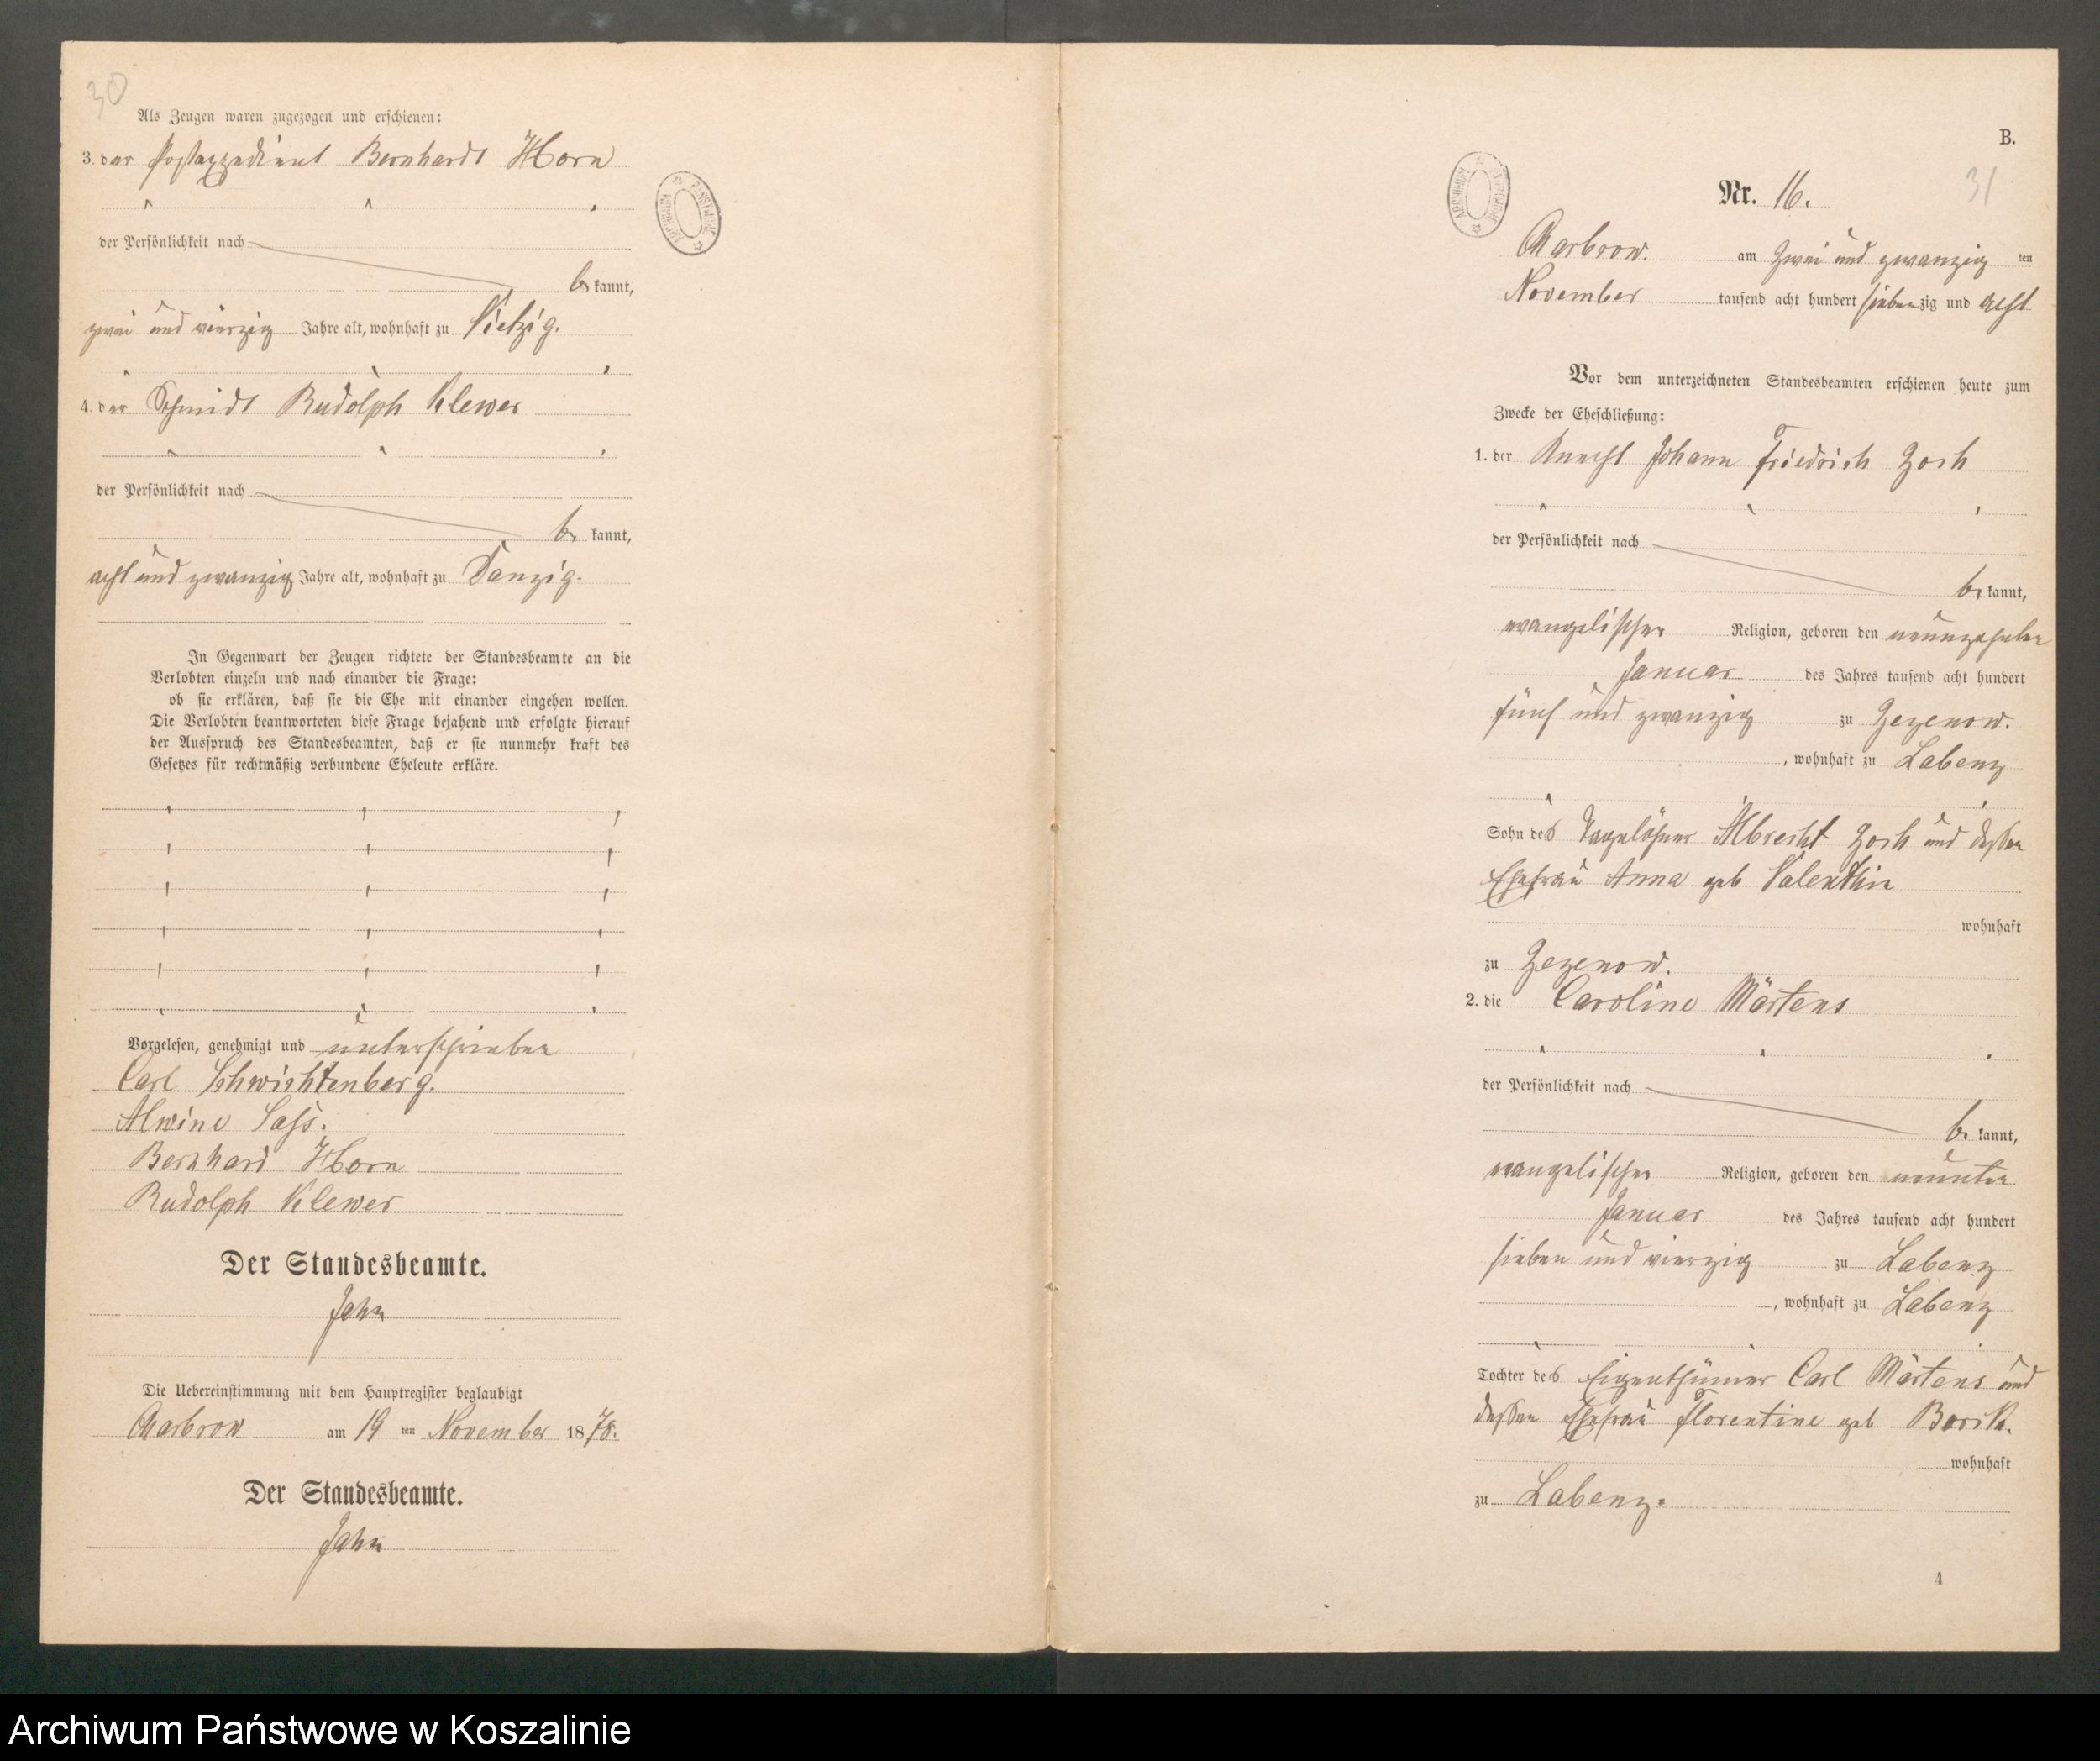 30
Als Zeugen waren zugezogen und erschienen:
3. der Postexpedient Bernhardt Horn
der Persönlichkeit nach
be kannt,
zwei und vierzig Jahre alt, wohnhaft zu Vietzig.
4. der Schmidt Rudolph Klewer
der Persönlichkeit nach
be kannt,
acht und zwanzig Jahre alt, wohnhaft zu Danzig.
In Gegenwart der Zeugen richtete der Standesbeamte an die
Verlobten einzeln und nach einander die Frage:
ob sie erklären, daß sie die Ehe mit einander eingehen wollen.
Die Verlobten beantworteten diese Frage bejahend und erfolgte hierauf
der Ausspruch des Standesbeamten, daß er sie nunmehr kraft des
Gesetzes für rechtmäßig verbundene Eheleute erkläre.
Vorgelesen, genehmigt und unterschrieben
Carl Schwichtenberg.
Alwine Sass.
Bernhard Horn
Rudolph Klewer
Der Standesbeamte.
Jahn
Die Uebereinstimmung mit dem Hauptregister beglaubigt
Charbrow am 19 ten November 1878.
Der Standesbeamte.
Jahn
B.
31
Nr. 16.
Charbrow. am zwei und zwanzig ten
November tausend acht hundert siebenzig und acht
Vor dem unterzeichneten Standesbeamten erschienen heute zum
Zwecke der Eheschließung:
1. der Knecht Johann Friedrich Zoch
der Persönlichkeit nach
be kannt,
evangelischer Religion, geboren den neunzehnten
Januar des Jahres tausend acht hundert
fünf und zwanzig zu Zezenow.
, wohnhaft zu Labenz
Sohn des Tagelöhner Albrecht Zoch und dessen
Ehefrau Anna geb Valenthin
wohnhaft
zu Zezenow.
2. die Caroline Märtens
der Persönlichkeit nach
be kannt,
evangelischer Religion, geboren den neunten
Januar des Jahres tausend acht hundert
sieben und vierzig zu Labenz
, wohnhaft zu Labenz
Tochter des Eigenthümer Carl Märtens und
dessen Ehefrau Florentine geb
wohnhaft
zu Labenz.
4
ARCHIWUM PAŃSTWOWE
ARCHIWUM PAŃSTWOWE
Archiwum Państwowe w Koszalinie